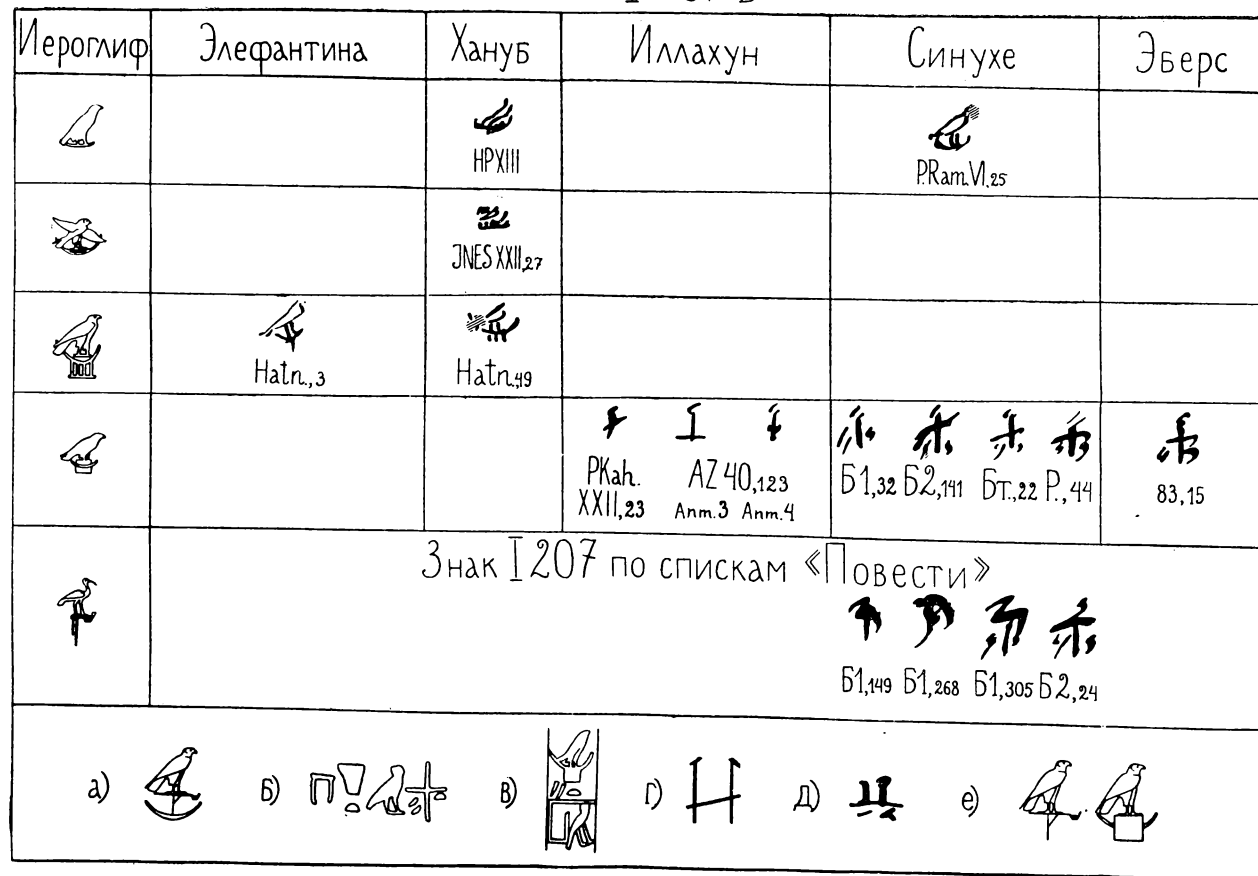 Иероглиф Элефантина Хануб Иллахун Синухе Эберс
HPXIII P.Ram.VI.25
JNES XXII,27
Hatn.,3 Hatn,49
PKah. XXII,23 AZ 40,123 Anm.3 Anm.4 Б1,32 Б2,141 Бт.,22 Р.,44 83,15
Знак I 207 по спискам «Повести»
Б1,149 Б1,268 Б1,305 Б2,24
а) б) в) г) д) е)